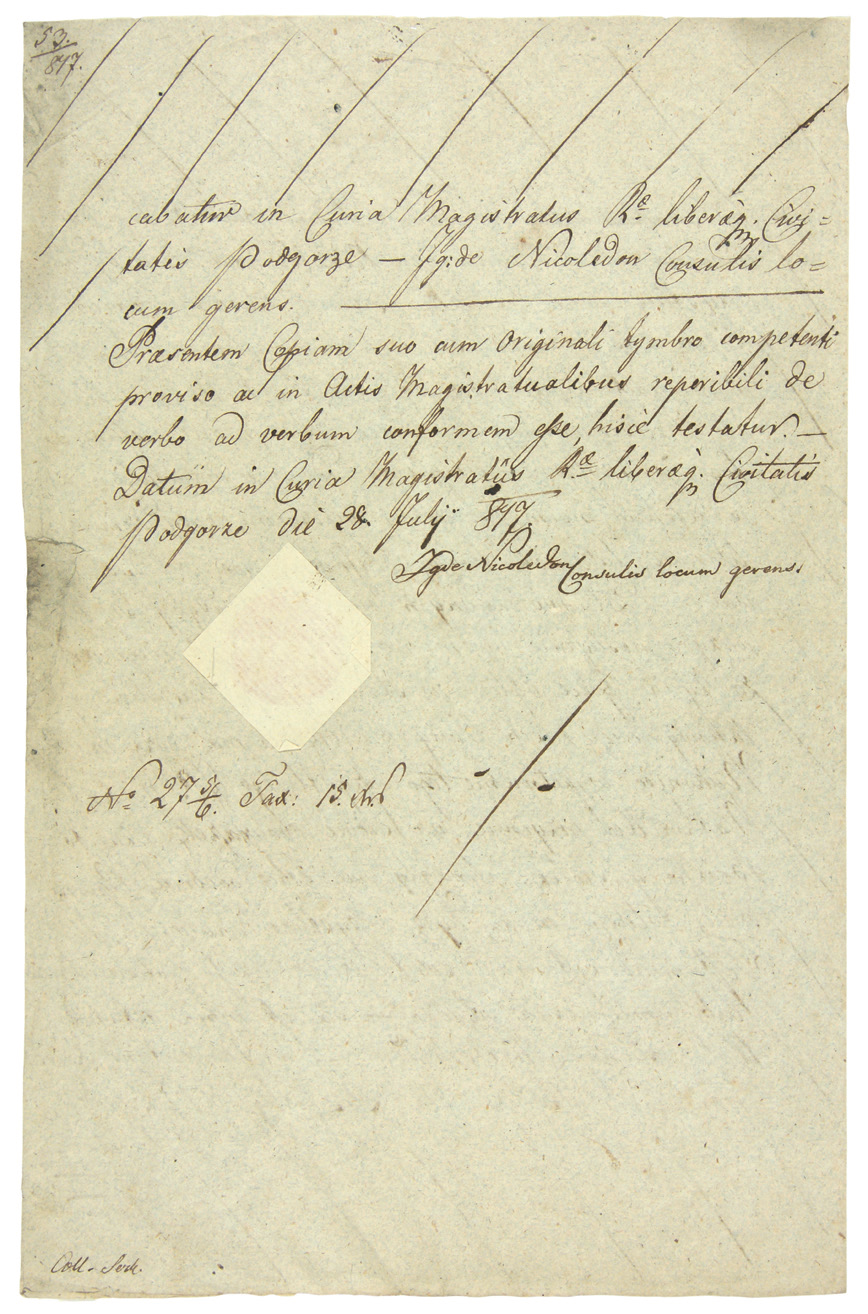 53.
817.
cabatur in Curia Magistratus Ræ liberæq. Civi=
tatis Podgorze — Ig: de Nicoledon Consulis lo=
cum gerens.
Præsentem Copiam suo cum Originali tymbro competenti
proviso ac in Actis Magistratualibus reperibili de
verbo ad verbum conformem esse, hisce testatur. —
Datum in Curia Magistratus Ræ liberæq. Civitatis
Podgorze die 28. Julij 817.
Ig de Nicoledon Consulis locum gerens.
No 27 5/6. Tax: 15.
Coll.